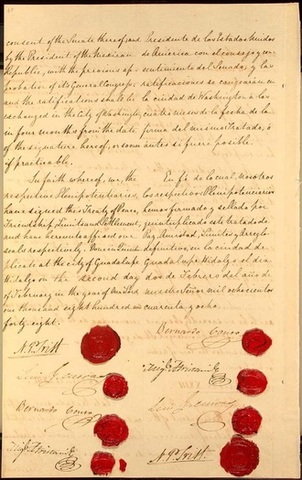 consent of the Senate thereof; and
by the President of the Mexican
Republic, with the previous ap-
probation of its General Congress;
and the ratifications shall be
exchanged in the City of Washington,
in four months from the date
of the signature hereof, or sooner
if practicable.
In faith whereof, we, the
respective Plenipotentiaries,
have signed this Treaty of Peace,
Friendship, Limits and Settlement,
and have hereunto affixed our
seals respectively. Done in Quintu-
plicate at the City of Guadalupe
Hidalgo on the second day
of February in the year of Our Lord
one thousand eight hundred and
forty eight.
N. P. Trist
Luis G. Cuevas
Bernardo Couto
Migl. Atristain
Presidente de los Estados Unidos
de América, con el consejo y con-
sentimiento del Senado; y las
ratificaciones se canjearán en
la ciudad de Washington a los
cuatro meses de la fecha de la
firma del mismo tratado, ó
antes si fuere posible.
En fe de lo cual, nosotros
los respectivos Plenipotenciarios
hemos firmado y sellado por
quintuplicado este tratado de
Paz, Amistad, Límites y Arreglo
definitivo, en la ciudad de
Guadalupe Hidalgo el dia
dos de Febrero del año de
nuestro Señor mil ochocientos
cuarenta y ocho.
Bernardo Couto
Migl. Atristain
Luis G. Cuevas
N. P. Trist